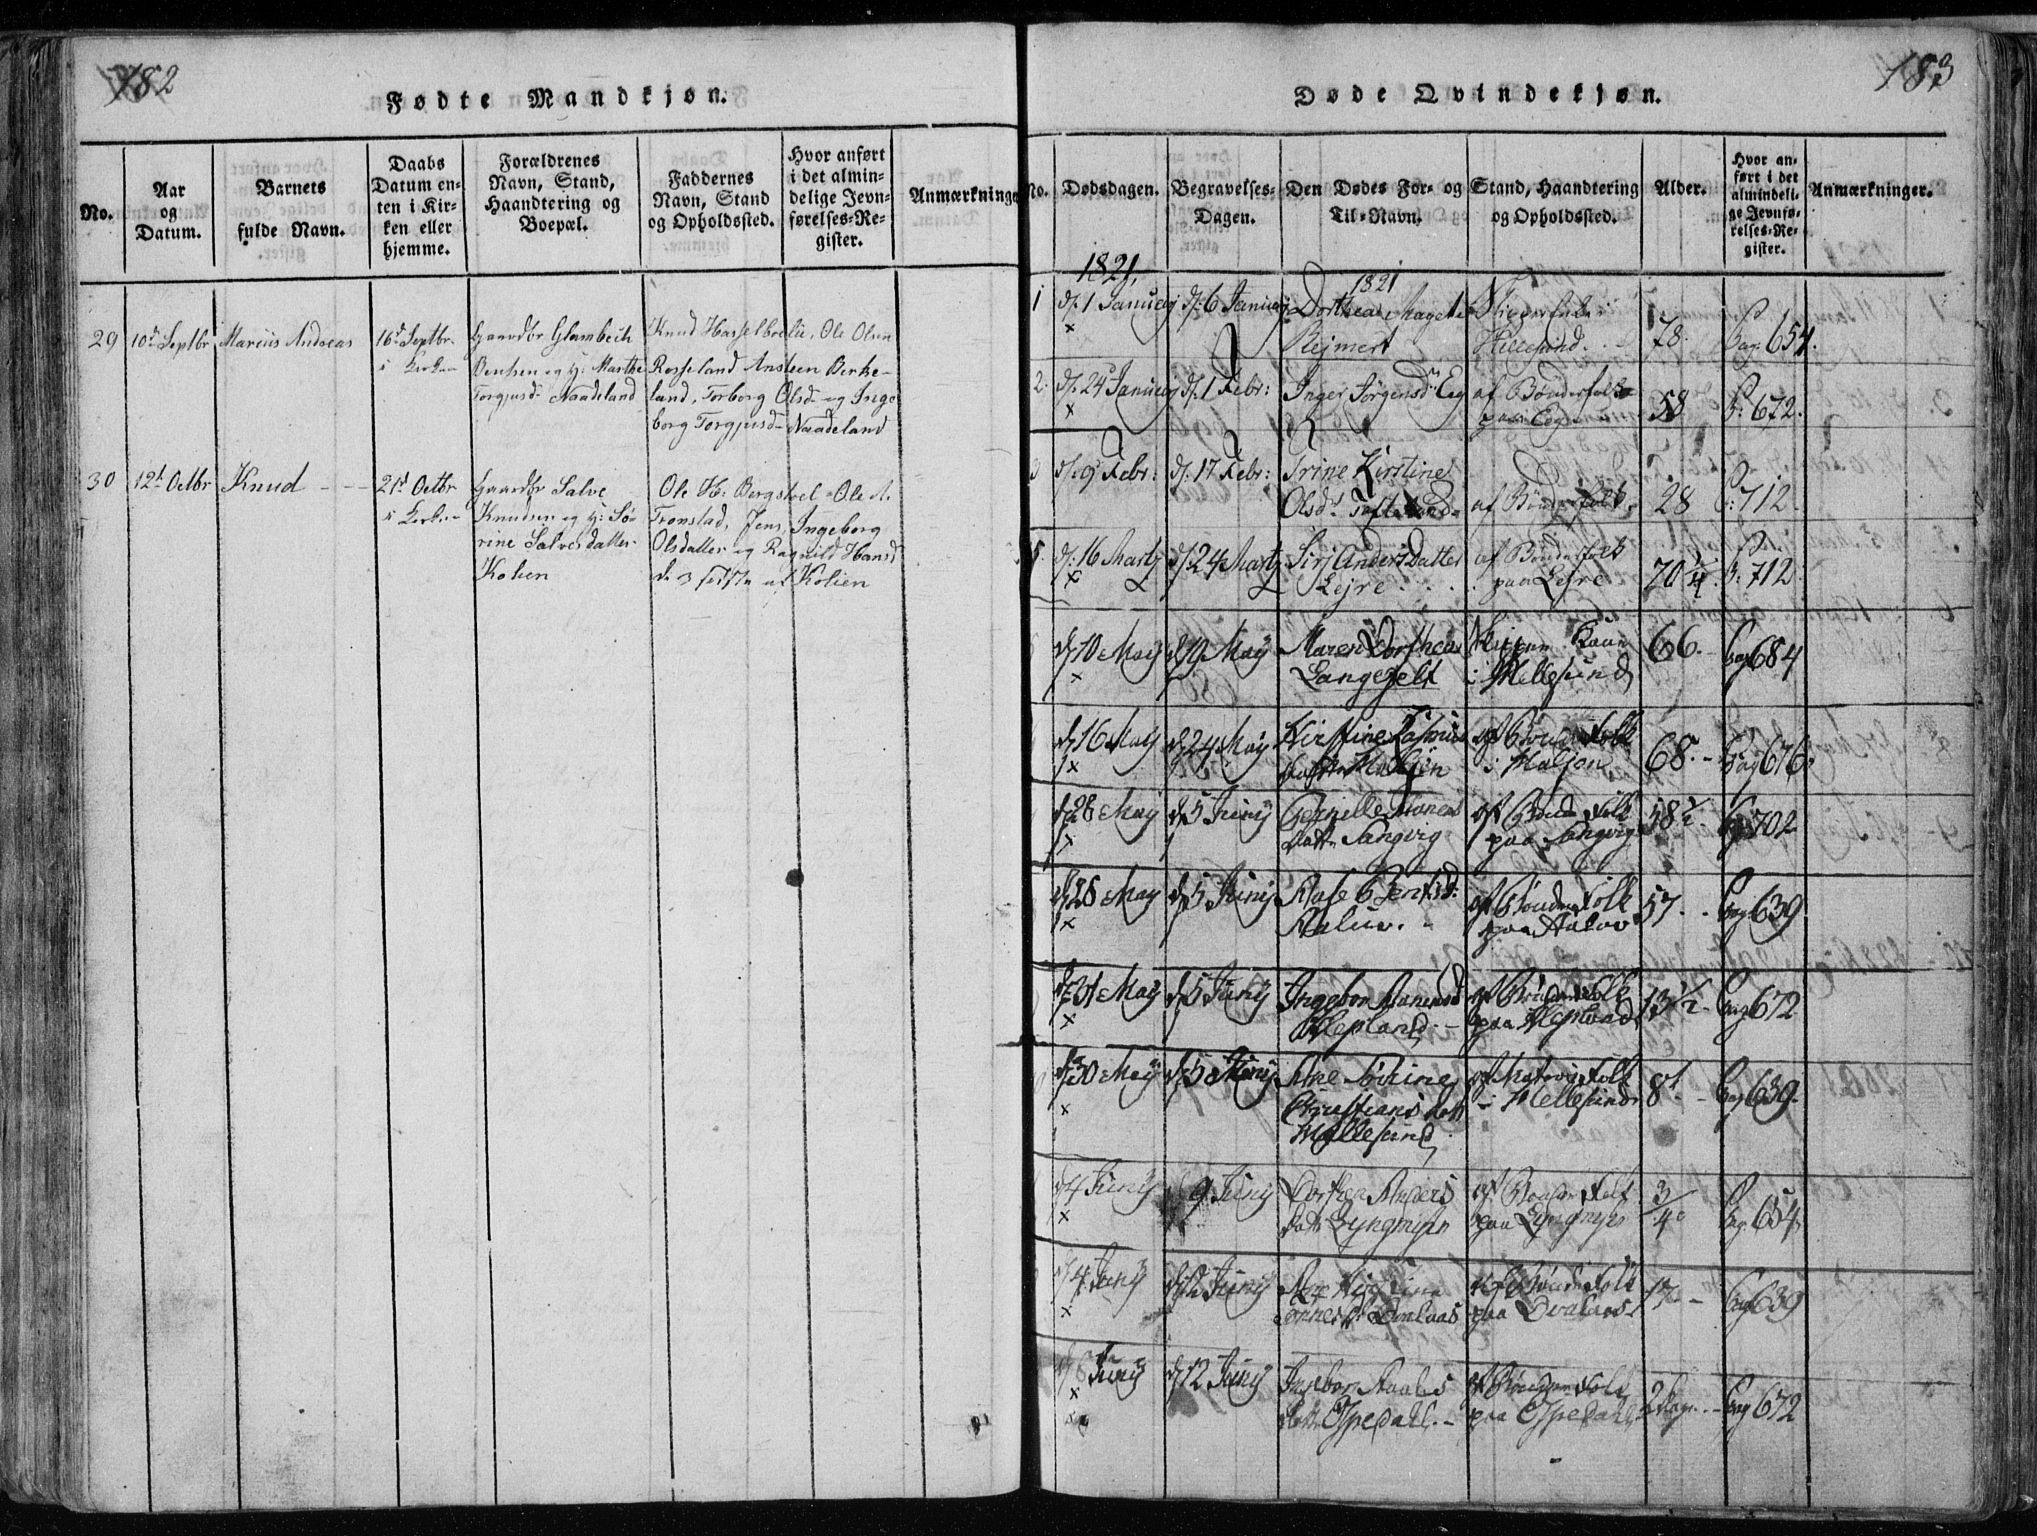 182
Fødte Mandkjøn.
No.
Aar
og
Datum.
Barnets
fulde Navn.
Daabs
Datum en-
ten i Kir-
ken eller
hjemme.
Forældrenes
Navn, Stand,
Haandtering og
Boepæl.
Faddernes
Navn, Stand
og Opholdssted.
Hvor anført
i det almin-
delige Jevn-
førelses-Re-
gister.
Anmærkninge
29
10d Septbr
Marcus Andreas
16d Septbr.
i Kirken
Gaardbr Glambech
Bentsen og H: Marthe
Torgjusd Naadeland
Knud Hasselbræk, Ole Olsen
Rosseland Ansteen Birke-
land, Torborg Olsd og Inge
borg Torgjusd Naadeland
30
12t Octbr
Knud
21d Octbr
i Kirken
Gaardbr Salve
Knudsen og H: Sø-
rine Salvesdatter
Kolien
Ole K: Bergstøl Ole A.
Tronstad, Jens, Ingeborg
Olsdatter og Ragnild Hansd
de 3 sidste af Kolien
183
Døde Qvindekjøn.
No.
Dødsdagen.
Begravelses-
Dagen.
Den Dødes For- og
Til-Navn.
Stand, Haandtering
og Opholdssted.
Alder.
Hvor an-
ført i det
almindeli-
ge Jevnfø-
relses-Re-
gister.
Anmærkninger.
1821.
1821
1
d. 1 January
x
d. 6 January
Dorthea Magete
Rejmert
Hillesund.
78.
Pag: 654.
2.
d. 24 January
x
d. 1 Febr:
Inger Jørgensd Eeg
af Bønderfolk
paa Eeg
58
P: 672.
3
d. 9 Febr:
d. 17 Febr:
Trine Kirstine
Olsd. Tofteland
af Bønderfolk
28
P: 712.
d. 16 Marty
x
d. 24 Marty
Siri Anders Datter
Lejre
af Bønderfolk
paa Lejre
70 1/4
P: 712.
d. 10 May
x
d. 19 May
Maren Dorthea
Langefelt
i Hellesund
66.
Pag 684
d. 16 May
x
d. 24 May
Kirstine Rasmus
Datter Maljen
af Bønder Folk
i Maljen
68.
Pag 676.
d. 28 May
x
d. 5 Juny
Pernille Thones
Datt. Langvig
af Bønder Folk
paa Langvig
58 1/2
Pag 702
d. 28 May
x
d. 5 Juny
Aase Bentsd:
af Bønder Folk
57.
Pag 639
d. 31 May
x
d. 5 Juny
Ingebor
af Bønder Folk
13 1/2
Pag 672
d. 30 May
x
d. 5 Juny
Ane Sørine
Christians Datt
Hellesund
af Matros Folk
i Hellesund
8.
Pag 639.
d. 4 Juny
x
9 Juny
Dorthea Anders
Datt. Lyngnesen
af Bønder Folk
paa Lyngnesen
3/4
Pag 654
d. 4 Juny
x
d. 12 Juny
af Bønder Folk
paa Dvalaas
17
Pag 639
d. 8 Juny
x
d. 12 Juny
Ingebor
Datt. Ospedahl.
af Bønder Folk
paa Ospedahl
2 Dage
Pag 672